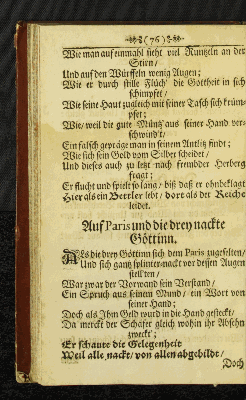 (76)
Wie man auf einmahl sieht viel Runtzeln an der
Stirn/
Und auf den Würffeln wenig Augen;
Wie er durch stille Flüch' die Gottheit in sich
schimpfet/
Wie seine Haut zugleich mit seiner Tasch sich krüm-
pfet;
Wie/ weil die gute Müntz aus seiner Hand ver-
schwind't/
Ein falsch gepräge man in seinem Antlitz findt;
Wie sich sein Gold vom Silber scheidet/
Und dieses auch zu letzt nach frembder Herberg
fragt;
Er flucht und spielt so lang/ biß daß er ohnbeklagt
Hier als ein Bettler lebt/ dort als der Reiche
leidet.
Auf Paris und die drey nackte
Göttinn.
Als die drey Göttinn sich dem Paris zugeselten/
Und sich gantz splitter-nackt vor dessen Augen
stell'ten/
War zwar der Vorwand sein Verstand/
Ein Spruch aus seinem Mund/ ein Wort von
seiner Hand;
Doch als Ihm Geld wurd in die Hand gesteckt/
Da merckt der Schäfer gleich wohin ihr Absehn
zweckt;
Er schaute die Gelegenheit
Weil alle nackt/ von allen abgebildt/
Doch